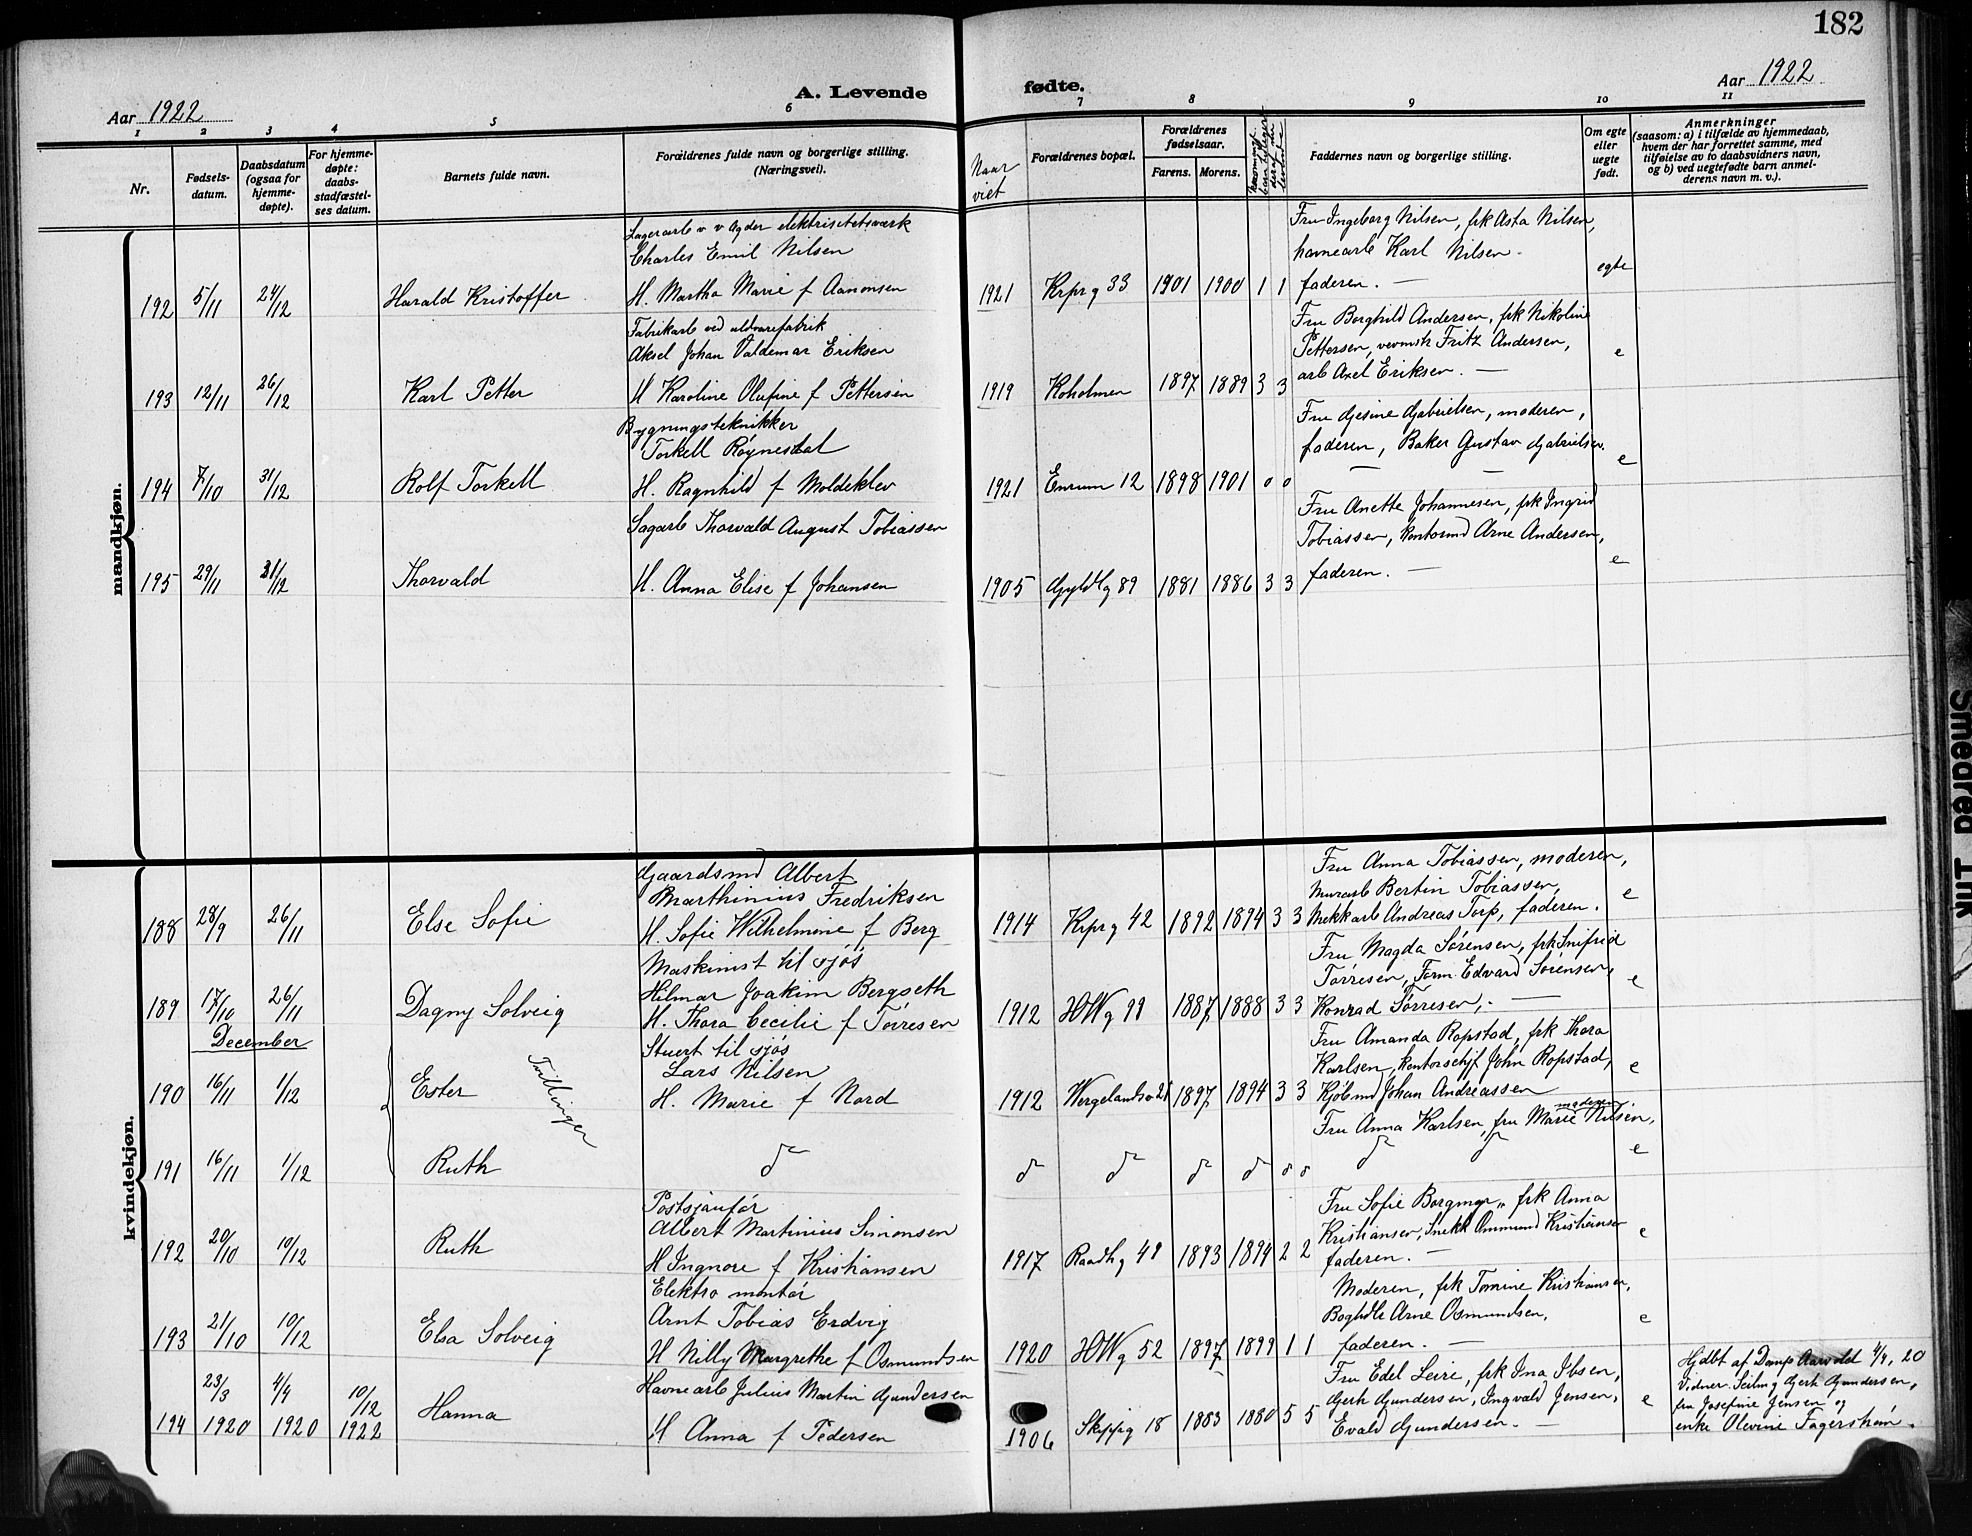 182
Aar 1922
A. Levende
fødte.
Aar 1922
1 2 3 4 5 6 7 8 9 10 11
Nr.
Fødsels-
datum.
Daabsdatum
(ogsaa for
hjemme-
døpte).
For hjemme-
døpte:
daabs-
stadfæstel-
ses datum.
Barnets fulde navn.
Forældrenes fulde navn og borgerlige stilling.
(Næringsvei).
Naar
viet
Forældrenes bopæl.
Forældrenes
fødselsaar.
Farens. Morens.
Faddernes navn og borgerlige stilling.
Om egte
eller
uegte
født.
Anmerkninger
(saasom: a) i tilfælde av hjemmedaab,
hvem der har forrettet samme, med
tilføielse av to daabsvidners navn,
og b) ved uegtefødte barn anmel-
derens navn m. v.).
mandkjøn.
Lagerarb v v Agder elektrisitetsverk
Charles Emil Nilsen
192 5/11 24/12 Harald Kristoffer H. Martha Marie f Aanonsen
1921 Krprg 33 1901 1900 1 1
Fru Ingeborg Nilsen, frk Asta Nilsen,
havnearb Karl Nilsen.
faderen. —
egte
Fabrikarb ved uldvarefabrik
Aksel Johan Valdemar Eriksen
193 12/11 26/12 Karl Petter H Karoline Olufine f Pettersen
1919 Koholmen 1897 1889 3 3
Fru Borghild Andersen, frk Nikoline
Pettersen, Fritz Andersen,
arb Axel Eriksen. —
e
Bygningsteknikker
Torkell Røynestal
194 7/10 31/12 Rolf Torkell H. Ragnhild f Moldeklev
1921 Enrum 12 1898 1901 0 0
Fru Gjesine Gabrielsen, moderen,
faderen, Baker Gustav Gabrielsen.
e
Sagarb Thorvald August Tobiassen
195 29/11 31/12 Thorvald H. Anna Elise f Johansen
1905 Gyldlg 89 1881 1886 3 3
Fru Anette Johannesen, frk Ingrid
Tobiassen, kontormd Arne Andersen,
faderen. —
e
kvindekjøn.
Gaardsmd Albert
Marthinius Fredriksen
188 28/9 26/11 Else Sofie H. Sofie Wilhelmine f Berg
1914 Krprg 42 1892 1894 3 3
Fru Anna Tobiassen, moderen,
Murarb Bertin Tobiassen,
Mekkarb Andreas Torp, faderen.
e
Maskinist til sjøs
Hilmar Joakim Bergseth
189 17/10 26/11 Dagny Solveig H. Thora Cecilie f Tørresen
1912 HWg 99 1887 1888 3 3
Fru Magda Sørensen, frk Snifrid
Tørresen, Form. Edvard Sørensen,
Konrad Tørresen,. —
e
December
Stuert til sjøs
Lars Nilsen
190 16/11 1/12 Ester Tvillinger H. Marie f Nord
1912 1897 1894 3 3
Fru Amanda Ropstad, frk Thora
Karlsen, kontorschf John Ropstad,
Kjøbmd Johan Andreassen
Fru Anna Karlsen, fru Marie Nilsen,
moderen
e
191 16/11 1/12 Ruth do
do do do do do do do do
e
Postsjaufør
Albert Martinius Simonsen
192 20/10 10/12 Ruth H Ingnore f Kristiansen
1917 Raadhg 49 1893 1894 2 2
Fru Sofie Borgmyr, frk Anna
Kristiansen, Snekk Ommund Kristiansen
faderen. —
e
Elektro montør
Arnt Tobias Erdvig
193 21/10 10/12 Elsa Solveig H Nilly Margrethe f Osmundsen
1920 HWg 52 1897 1899 1 1
Moderen, frk Tomine Kristiansen,
Boghdl Arne Osmundsen,
faderen. —
e
Havnearb Julius Martin Gundersen
194 23/3 1920 4/4 1920 10/12 1922 Hanna H Anna f Pedersen
1906 Skippg 18 1883 1880 5 5
Fru Edel Leire, frk Ina Ibsen,
Gerh Gundersen, Ingvald Jensen,
Evald Gundersen. —
e
Hjdbt af Aarvold 4/4, 20
Vidner: Seilmg Gerh Gundersen,
fru Josefine Jensen og
enke Olevine Fagershøm.
Smeared Ink